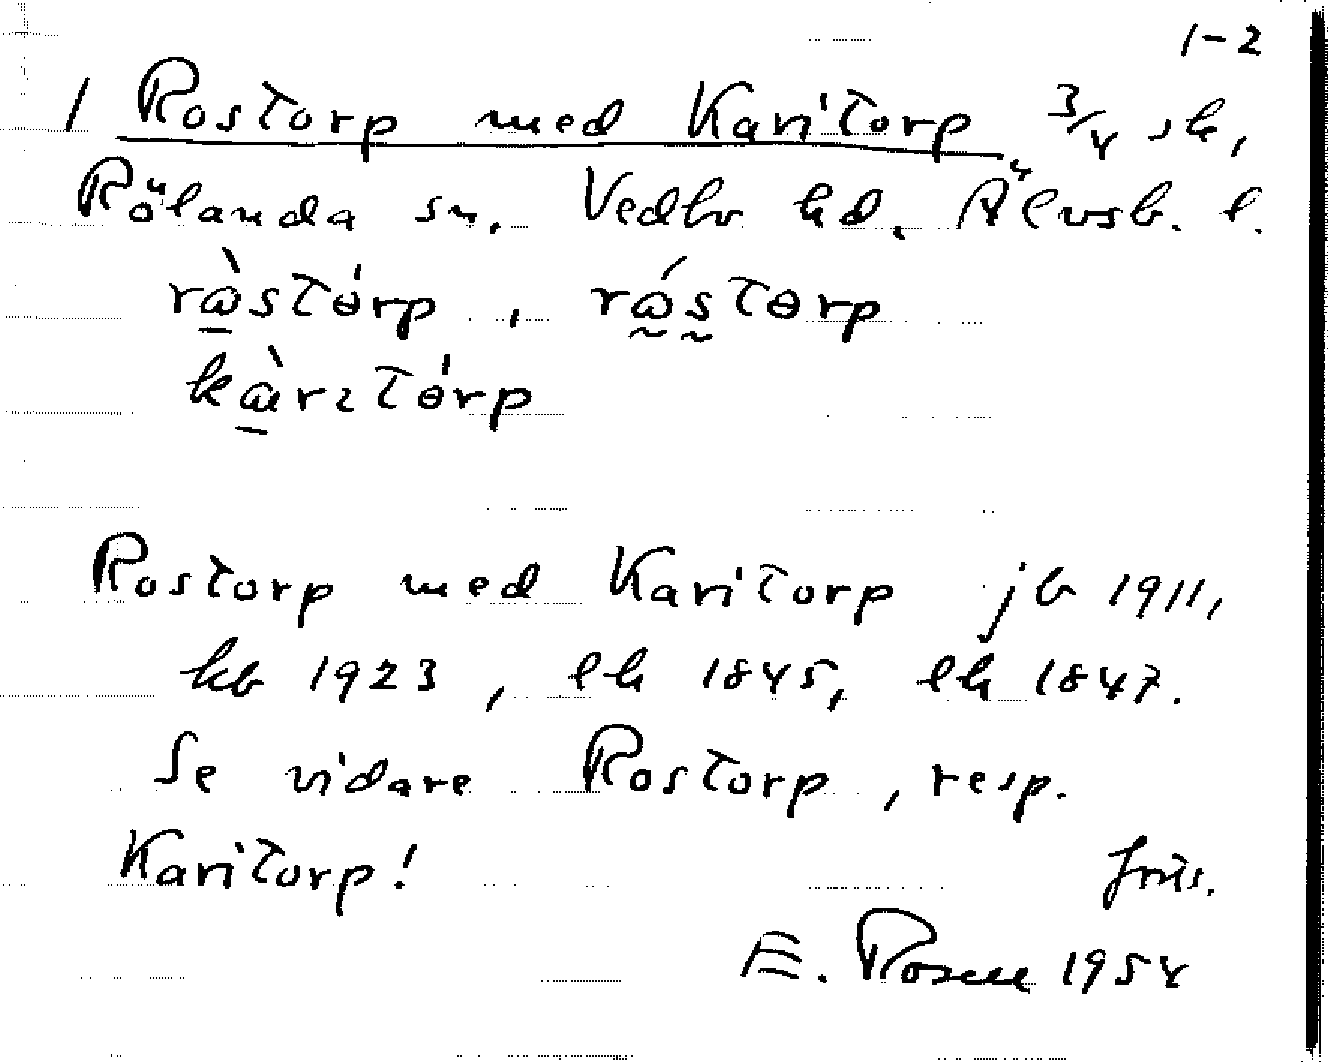 1-2
1 Rostorp med Karitorp 3/4 sk,
Rölanda sn. Vedbo hd. Älvsb. l.
ràstórp, rástɵrp
kàrɩtórp
Rostorp med Karitorp jb 1911,
kb 1923, lk 1845, lk 1847.
Se vidare Rostorp, resp.
Karitorp! forts.
E. Rosell 1954